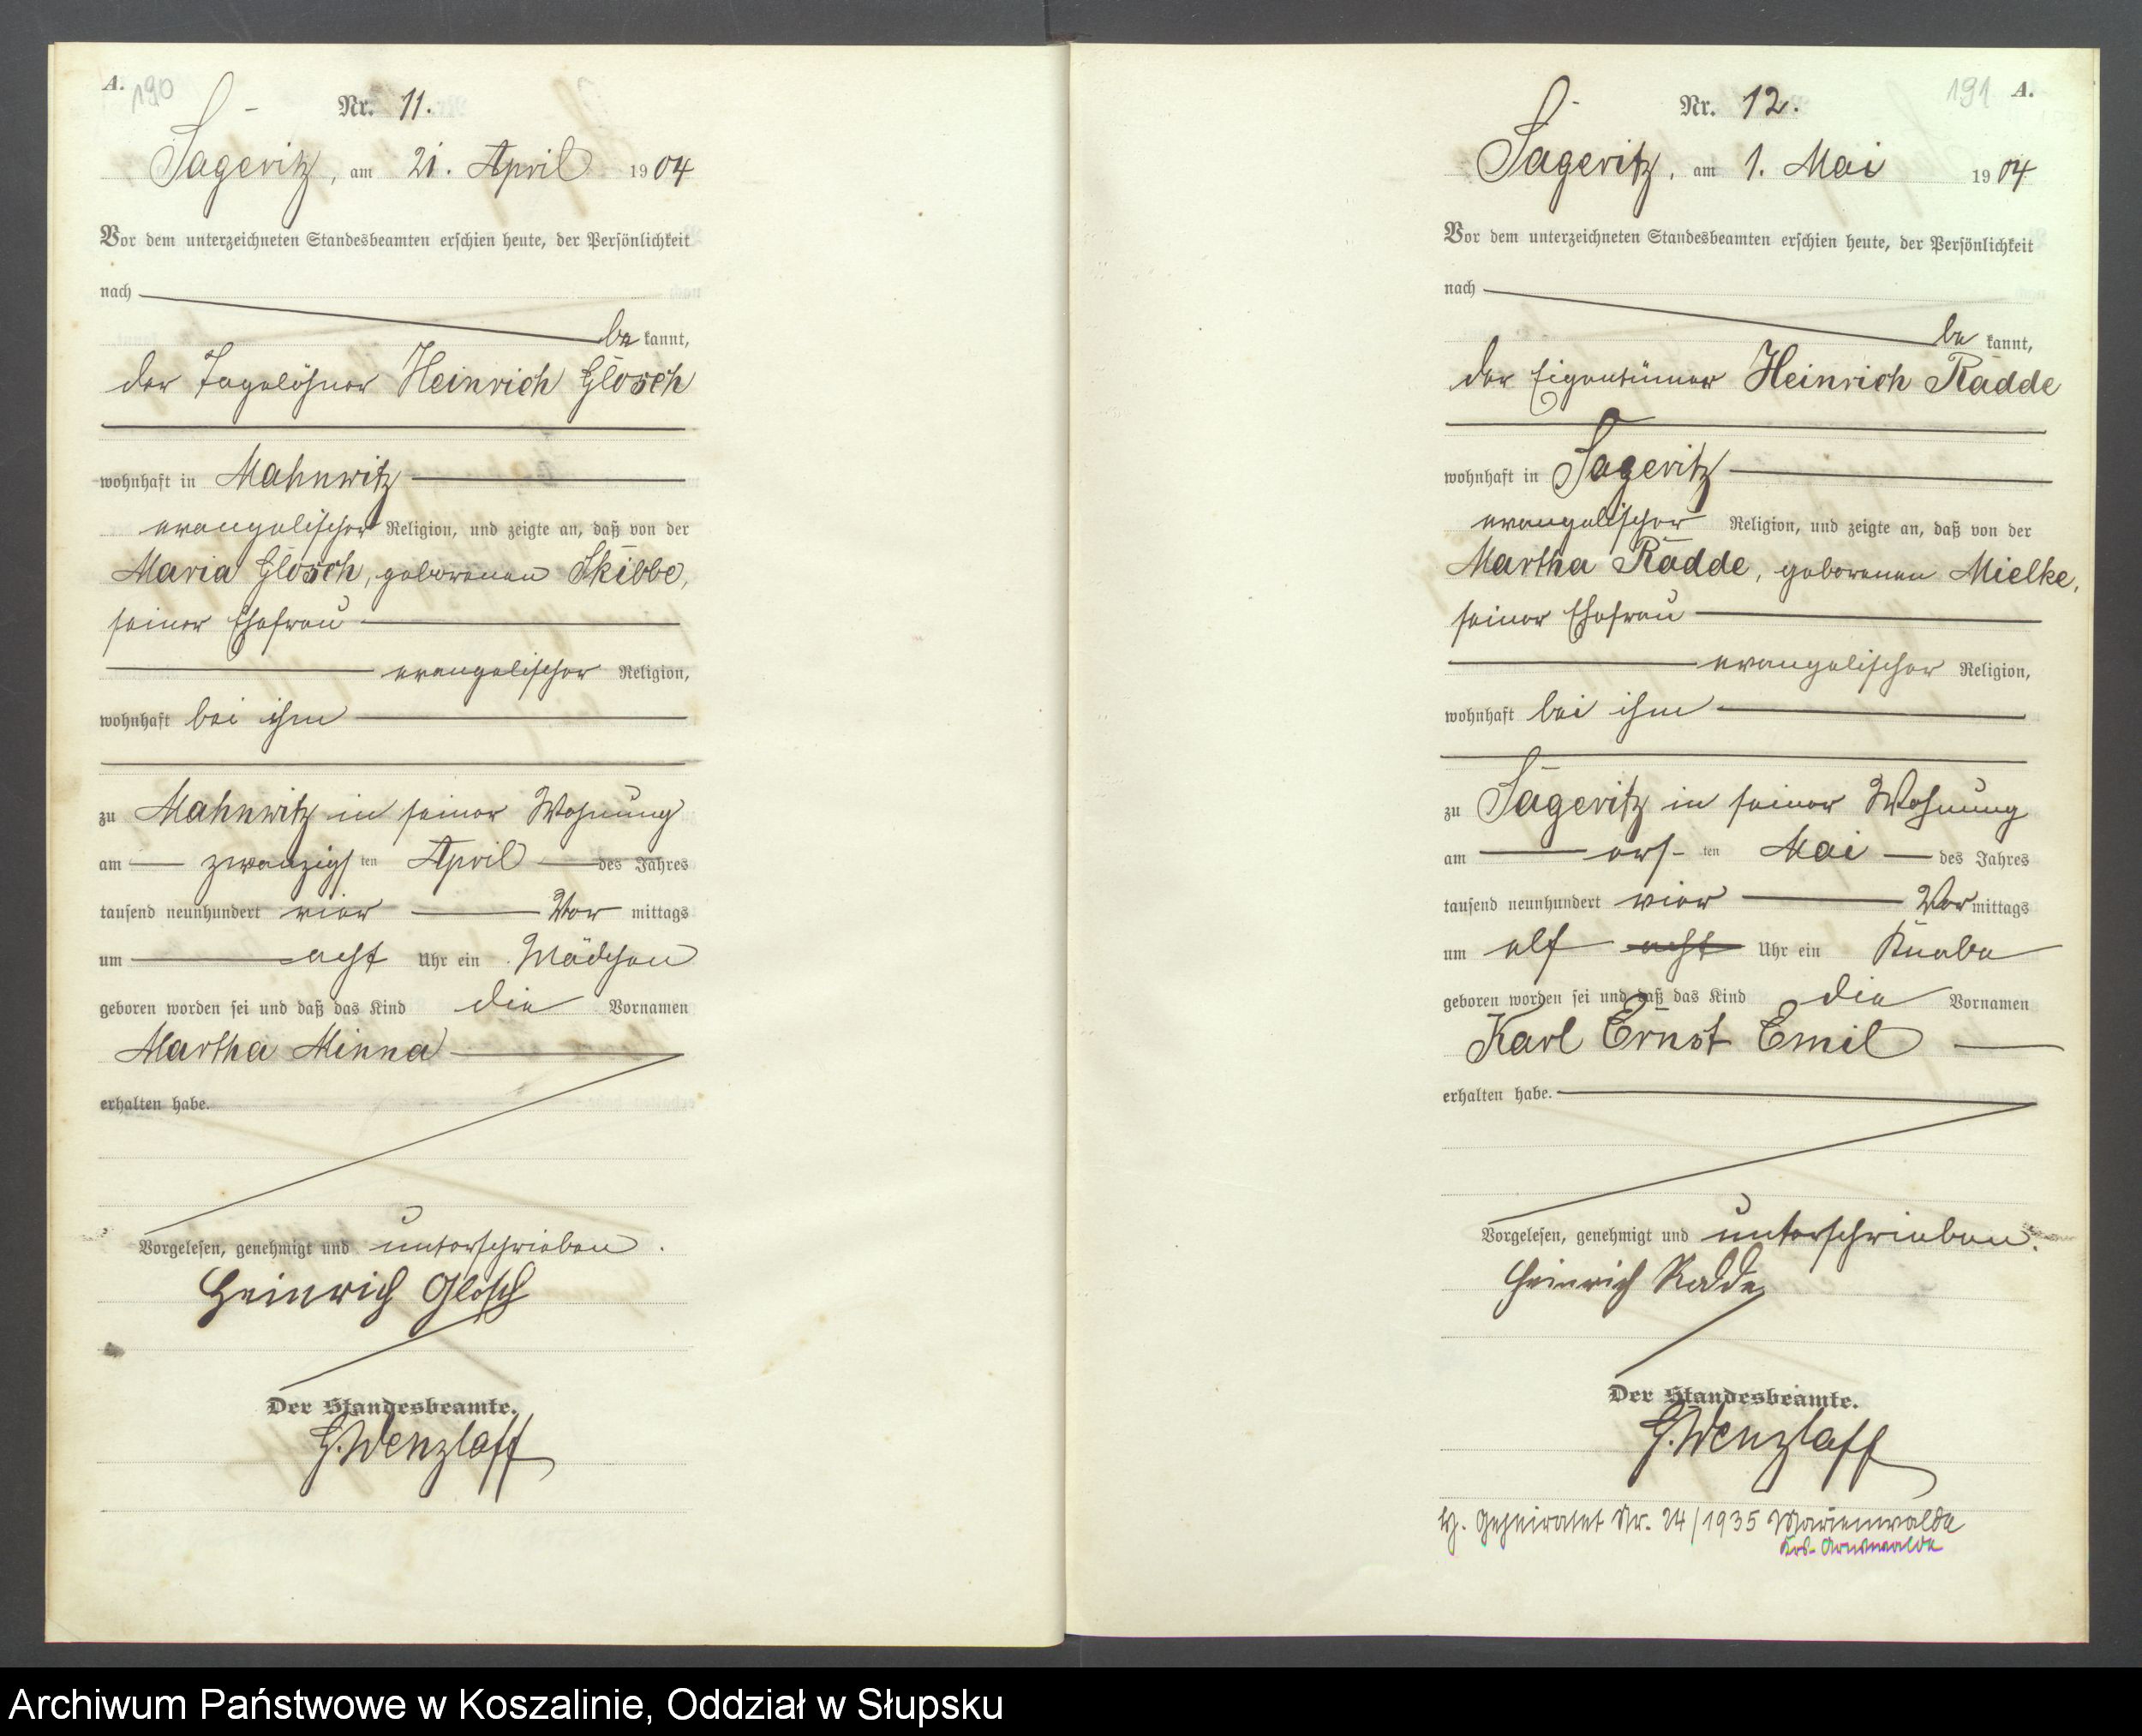 A.
190
Nr. 11.
Sageritz, am 21. April 1904
Vor dem unterzeichneten Standesbeamten erschien heute, der Persönlichkeit
nach
be kannt,
der Tagelöhner Heinrich Glosch
wohnhaft in Mahnwitz
evangelischer Religion, und zeigte an, daß von der
Maria Glosch, geborenen Skibbe,
seiner Ehefrau
evangelischer Religion,
wohnhaft bei ihm
zu Mahnwitz in seiner Wohnung
am zwanzigsten April des Jahres
tausend neunhundert vier Vor mittags
um acht Uhr ein Mädchen
geboren worden sei und daß das Kind die Vornamen
Martha Minna
erhalten habe.
Vorgelesen, genehmigt und unterschrieben.
Heinrich Glosch
Der Standesbeamte.
G. Wenzlaff
191
A.
Nr. 12.
Sageritz, am 1. Mai 1904
Vor dem unterzeichneten Standesbeamten erschien heute, der Persönlichkeit
nach
be kannt,
der Eigentümer Heinrich Radde
wohnhaft in Sageritz
evangelischer Religion, und zeigte an, daß von der
Martha Radde, geborenen Mielke,
seiner Ehefrau
evangelischer Religion,
wohnhaft bei ihm
zu Sageritz in seiner Wohnung
am ersten Mai des Jahres
tausend neunhundert vier Vor mittags
um elf acht Uhr ein Knabe
geboren worden sei und daß das Kind die Vornamen
Karl Ernst Emil
erhalten habe.
Vorgelesen, genehmigt und unterschrieben.
Heinrich Radde
Der Standesbeamte.
G. Wenzlaff
geheiratet Nr. 24/1935 Marienwalde
Krs. Arnswalde
Archiwum Państwowe w Koszalinie, Oddział w Słupsku